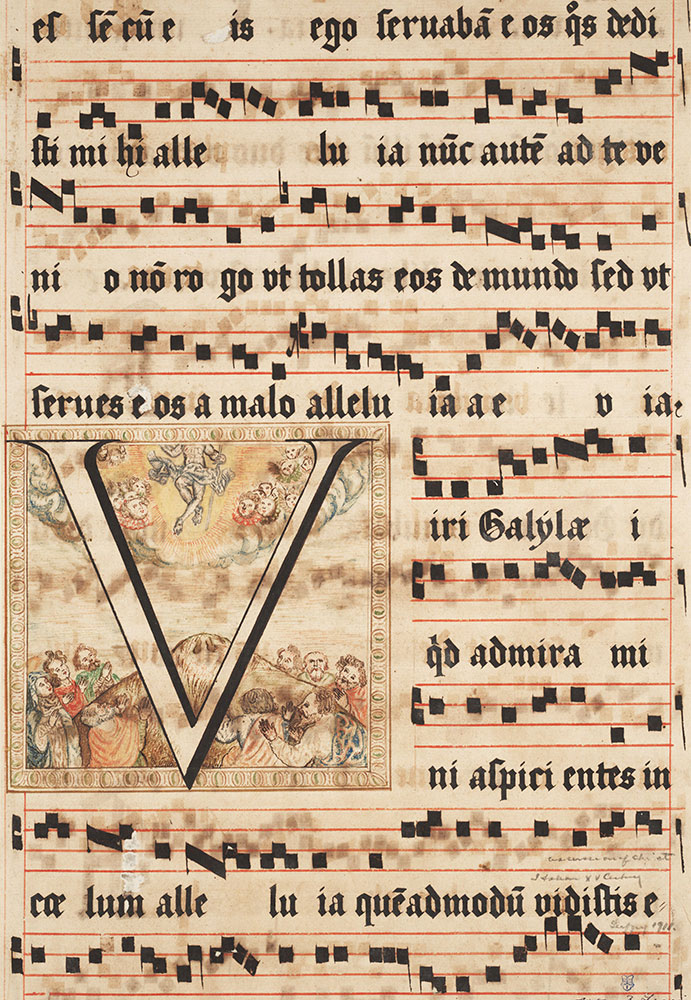 es sē cū e is ego seruabā e os q̊s dedi
sti mi hi alle lu ia nūc autē ad te ve
ni o nō ro go vt tollas eos de mundo sed vt
serues e os a malo allelu ia a e v ia:
Viri Galylæ i
qd admira mi
ni aspici entes in
cœ lum alle lu ia quēadmodū vidistis e